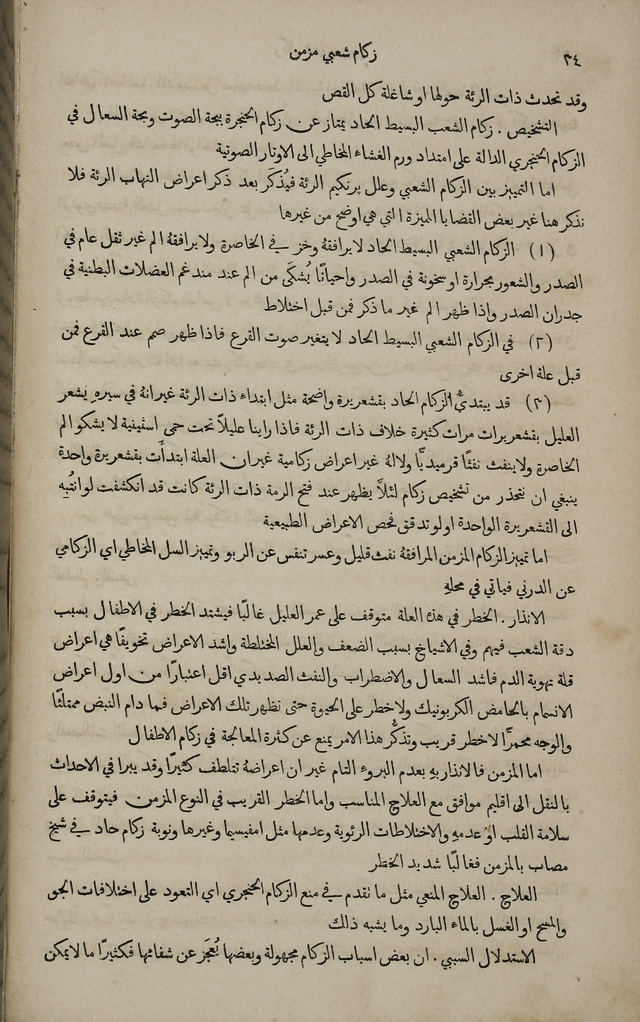 ٣٤
زكام شعبي مزمن
وقد تحدث ذات الرئة حولها او شاغلة كل الفص
التشخيص . زكام الشعب البسيط الحاد يمتاز عن زكام الحنجرة ببحة الصوت وبحة السعال في
الزكام الحنجري الدالة على امتداد ورم الغشاء المخاطي الى الاوتار الصوتية
اما التمييز بين الزكام الشعبي وعلل برنكيم الرئة فيُذكَر بعد ذكر اعراض التهاب الرئة فلا
نذكر هنا غير بعض القضايا الميزة التي هي اوضح من غيرها
(١) الزكام الشعبي البسيط الحاد لا يرافقهُ وخز في الخاصرة ولا يرافقهُ الم غير ثقل عام في
الصدر والشعور بحرارة او سخونة في الصدر واحيانًا يُشكَى من الم عند مندغم العضلات البطنية في
جدران الصدر واذا ظهر الم غير ما ذكر فمن قبل اختلاط
(٢) في الزكام الشعبي البسيط الحاد لا يتغير صوت القرع فاذا ظهر صمم عند القرع فمن
قبل علة اخرى
(٣) قد يبتدئُ الزكام الحاد بقشعريرة واضحة مثل ابتداء ذات الرئة غير انهُ في سيرهِ يشعر
العليل بقشعريرات مرات كثيرة خلاف ذات الرئة فاذا راينا عليلاً تحت حمى استينية لا يشكو الم
الخاصرة ولا ينفث نفثًا قرميديًّا ولا لهُ غير اعراض زكامية غير ان العلة ابتدأت بقشعريرة واحدة
ينبغي ان نتحذر من تشخيص زكام لئلاَّ يظهر عند فتح الرمة ذات الرئة كانت قد انكشفت لو انتُبِه
الى القشعريرة الواحدة او لو تدقق فحص الاعراض الطبيعية
اما تمييز الزكام المزمن المرافقهُ نفث قليل وعسر تنفس عن الربو وتمييز السل المخاطي اي الزكامي
عن الدرني فياتي في محلهِ
الانذار . الخطر في هذه العلة متوقف على عمر العليل غالبًا فيشتد الخطر في الاطفال بسبب
دقة الشعب فيهم وفي الاشياخ بسبب الضعف والعلل المختلطة واشد الاعراض تخويفًا هي اعراض
قلة تهوية الدم فاشد السعال والاضطراب والنفث الصديدي اقل اعتبارًا من اول اعراض
الانسمام بالحامض الكربونيك ولا خطر على الحيوة حتى تظهر تلك الاعراض فما دام النبض ممتلئًا
والوجه محمرًّا لا خطر قريب وتذكُّر هذا الامر يمنع عن كثرة المعالجة في زكام الاطفال
اما المزمن فالانذار بهِ بعدم البروء التام غير ان اعراضهُ تتلطف كثيرًا وقد يبرا في الاحداث
بالنقل الى اقليم موافق مع العلاج المناسب واما الخطر القريب في النوع المزمن فيتوقف على
سلامة القلب او عدمهِ والاختلاطات الرئوية وعدمها مثل امفيسيما وغيرها ونوبة زكام حاد في شيخ
مصاب بالمزمن فغالبًا شديد الخطر
العلاج . العلاج المنعي مثل ما تقدم في منع الزكام الحنجري اي التعود على اختلافات الجو
والمسح او الغسل بالماء البارد وما يشبه ذالك
الاستدلال السببي . ان بعض اسباب الزكام مجهولة وبعضها يُعجَز عن شفائها فكثيرًا ما لا يمكن